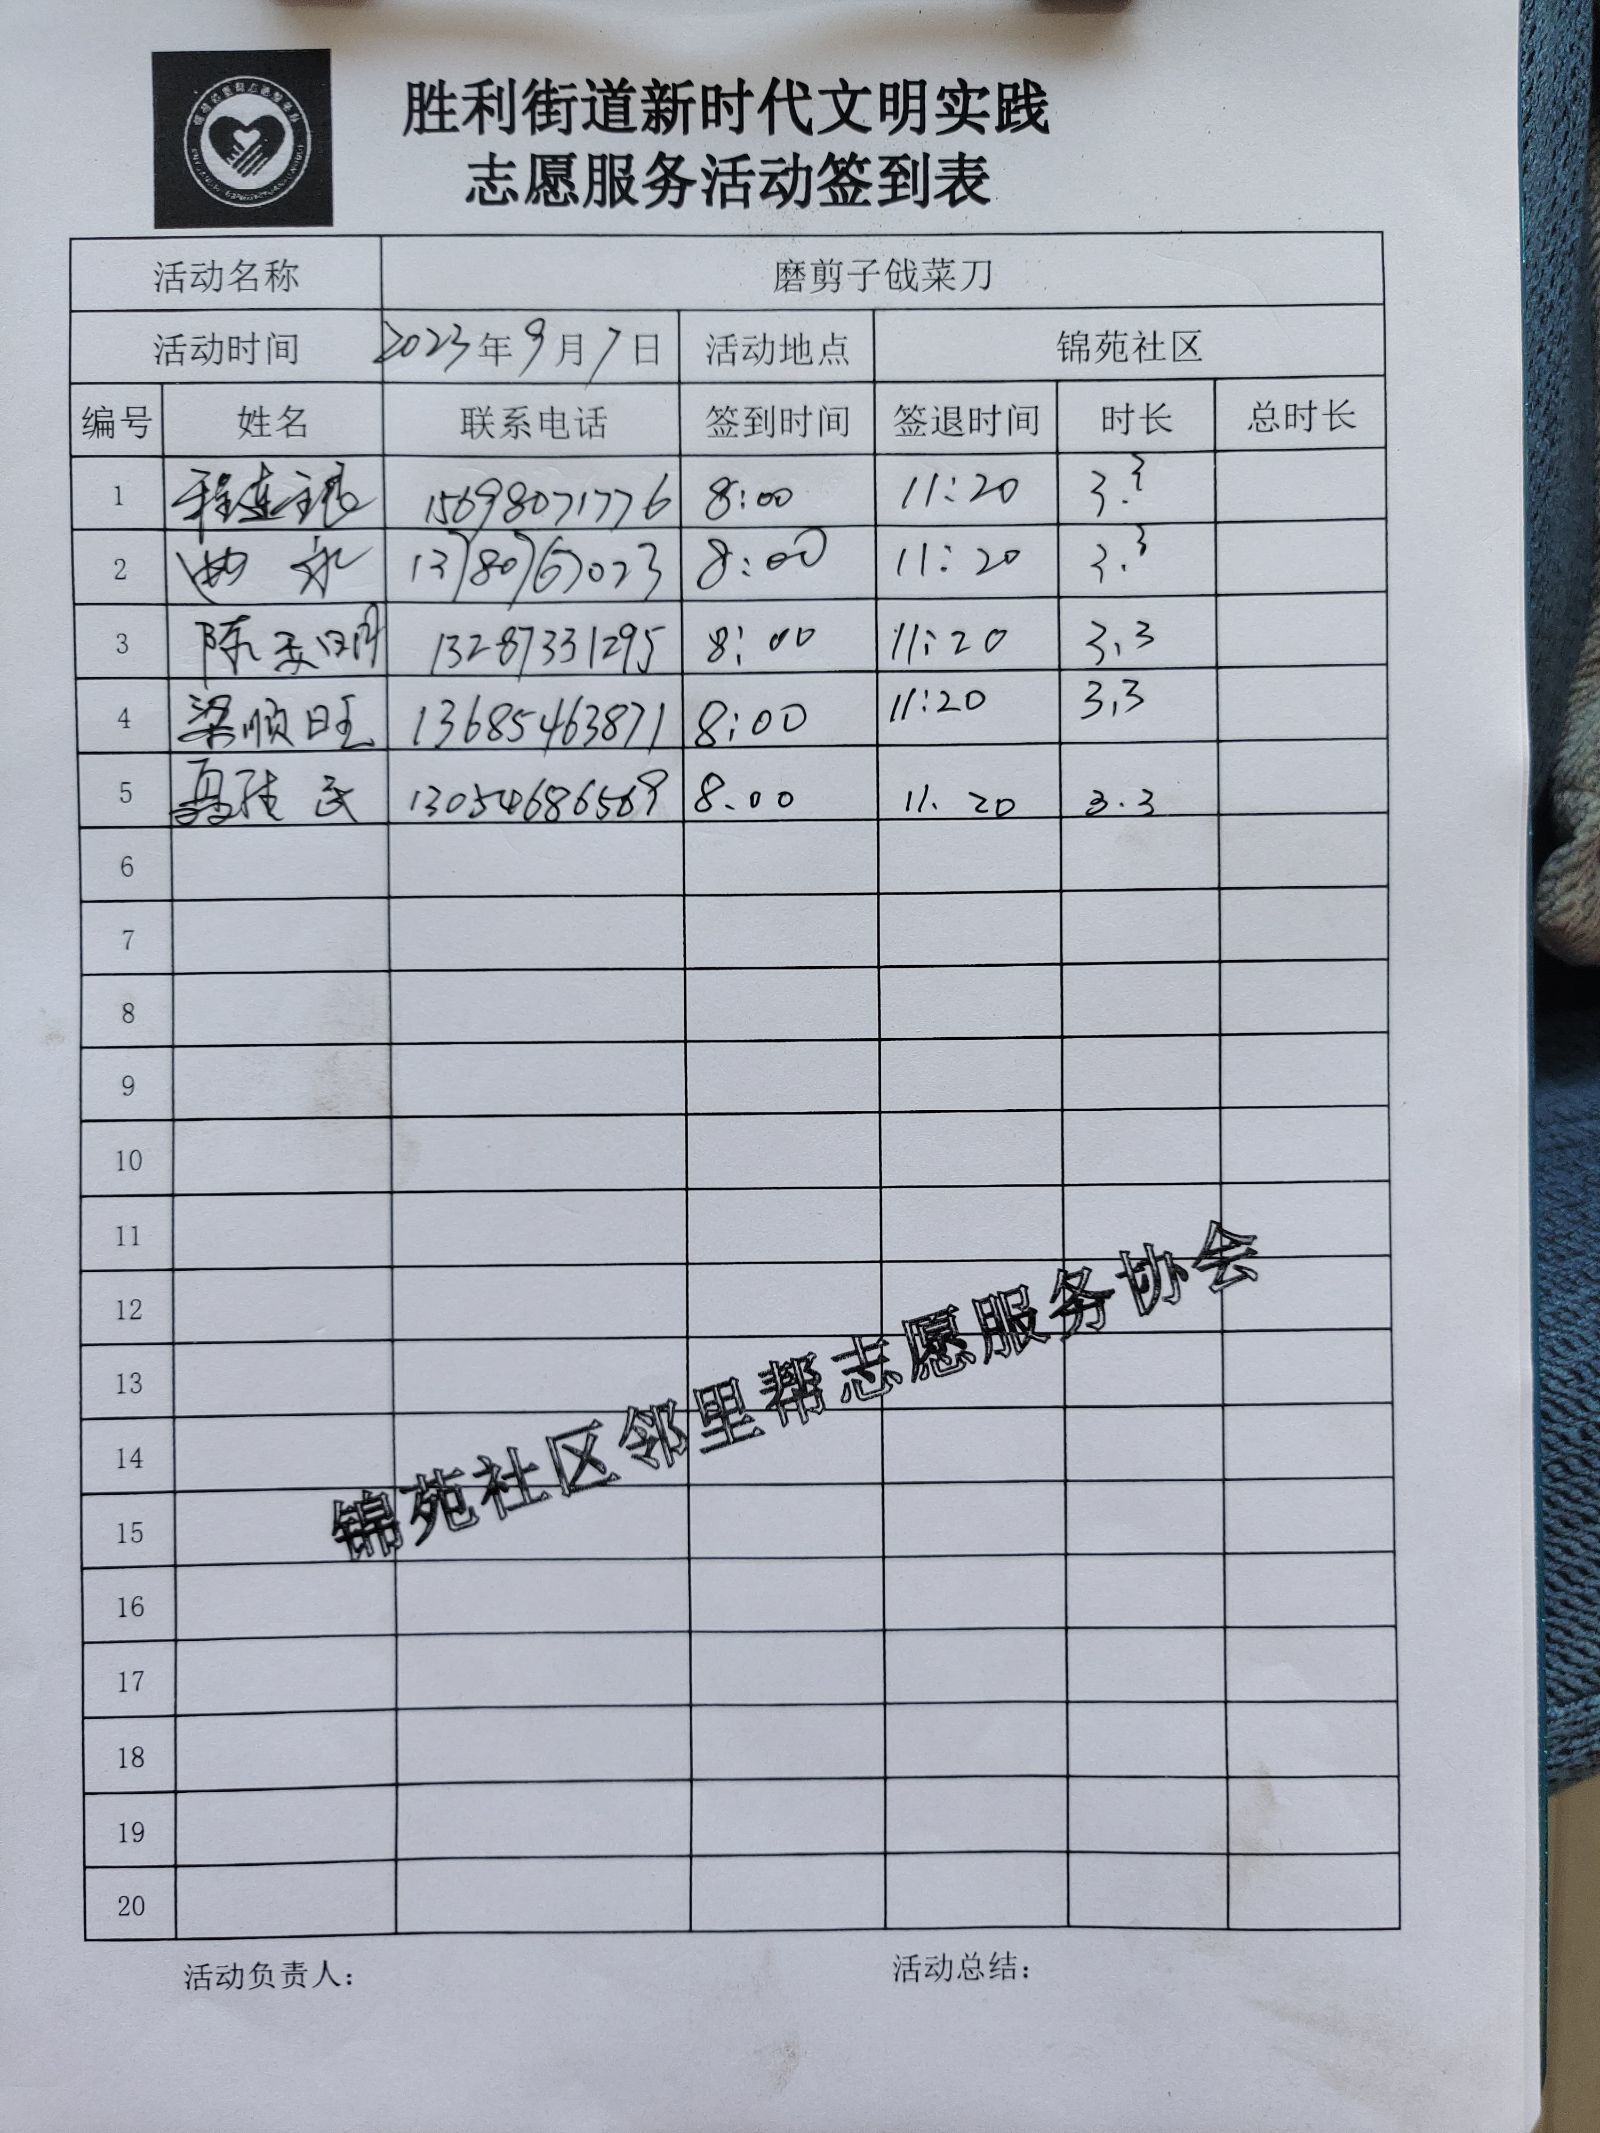 胜利街道新时代文明实践
志愿服务活动签到表
活动名称 磨剪子戗菜刀
活动时间 2023年9月7日 活动地点 锦苑社区
编号 姓名 联系电话 签到时间 签退时间 时长 总时长
1 15698071776 8:00 11:20 3.3
2 13780767023 8:00 11:20 3.3
3 13287331295 8:00 11:20 3.3
4 梁顺旺 13685463871 8:00 11:20 3.3
5 13054686569 8.00 11.20 3.3
6
7
8
9
10
11
12
13
14
15
16
17
18
19
20
锦苑社区邻里帮志愿服务协会
活动负责人: 活动总结: